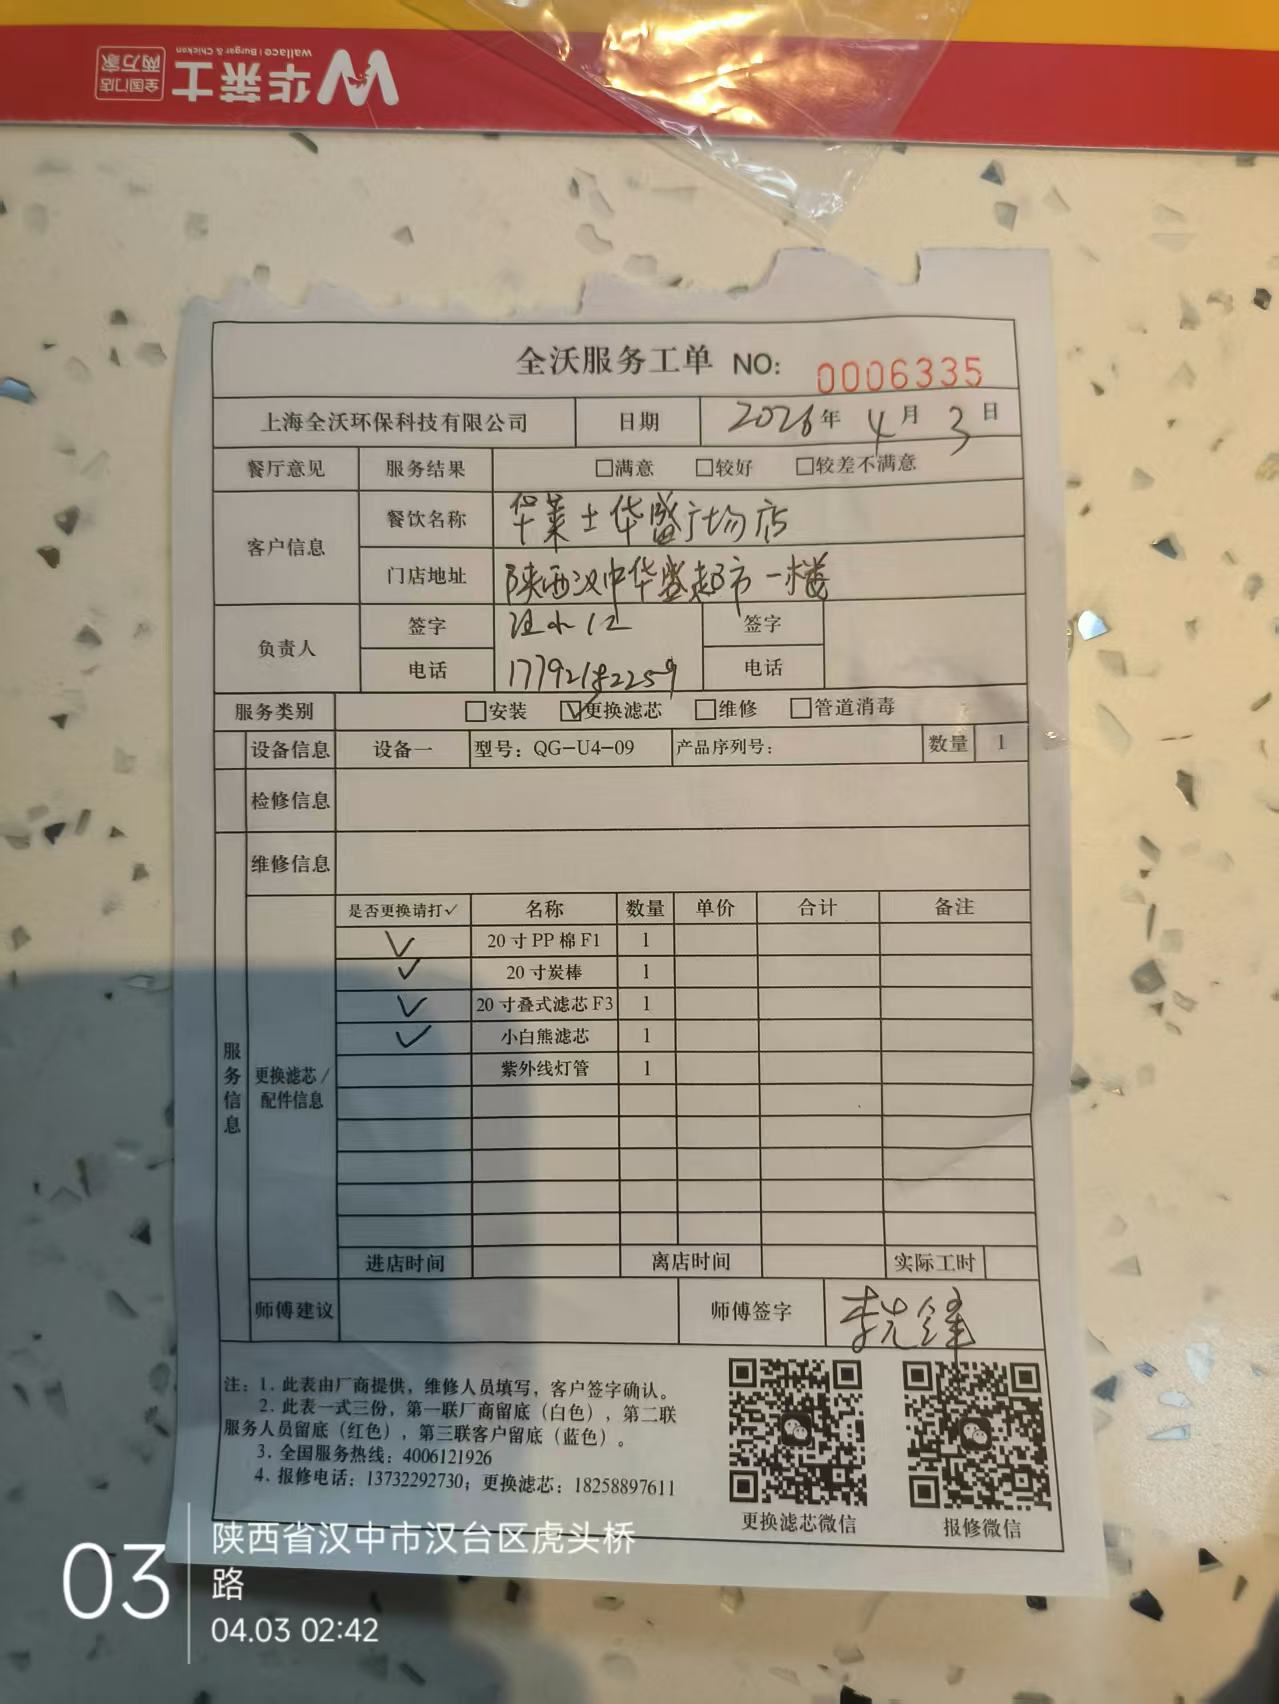 华莱士
Wallace | Burger & Chicken
全国门店
两万家
全沃服务工单 NO: 0006335
上海全沃环保科技有限公司 日期 2026年4月3日
餐厅意见 服务结果 □满意 □较好 □较差不满意
客户信息 餐饮名称 华莱士华盛广场店
门店地址 陕西汉中华盛超市一楼
负责人 签字 签字
电话 17792182259 电话
服务类别 □安装 ☑更换滤芯 □维修 □管道消毒
设备信息 设备一 型号：QG-U4-09 产品序列号： 数量 1
检修信息
维修信息
服务信息
更换滤芯/配件信息
是否更换请打✓ 名称 数量 单价 合计 备注
✓ 20寸PP棉F1 1
✓ 20寸炭棒 1
✓ 20寸叠式滤芯F3 1
✓ 小白熊滤芯 1
紫外线灯管 1
进店时间 离店时间 实际工时
师傅建议 师傅签字 李先锋
注：1. 此表由厂商提供，维修人员填写，客户签字确认。
2. 此表一式三份，第一联厂商留底（白色），第二联
服务人员留底（红色），第三联客户留底（蓝色）。
3. 全国服务热线：4006121926
4. 报修电话：13732292730；更换滤芯：18258897611
更换滤芯微信 报修微信
03
陕西省汉中市汉台区虎头桥
路
04.03 02:42